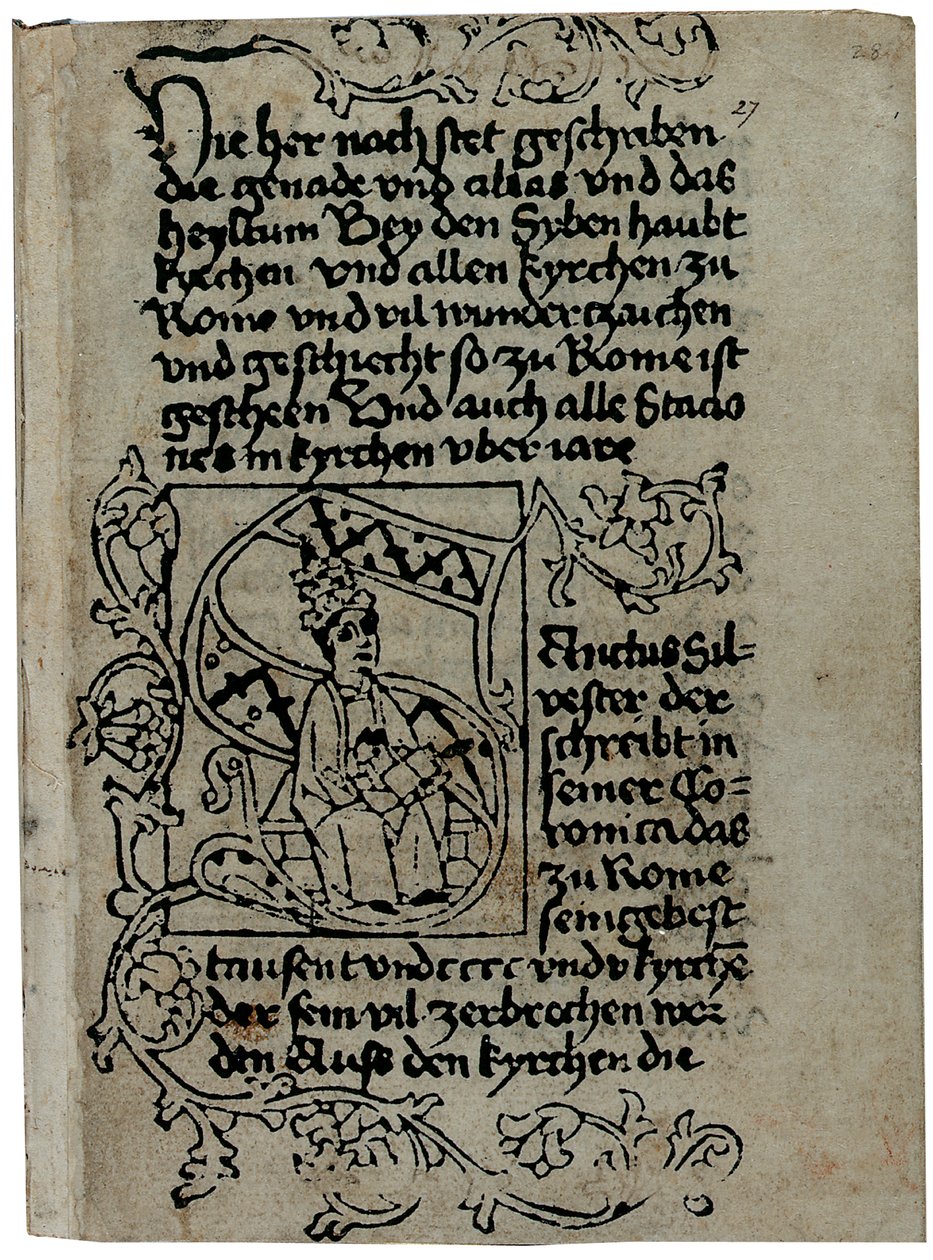 28
27
Hie her noch stet geschriben
die genade vnd ablas vnd das
heyltum Bey den Syben haubt
kyrchen vnd allen kyrchen zu
Rome vnd vil wunderczaichen
vnd geschiecht so zu Rome ist
gescheen Vnd auch alle Stacio
nes in kyrchen vber iare
Anctus Sil=
vester der
schreibt in
seiner Co=
ronica das
zu Rome
sein gebest
tausent vnd cccc vnd v kyrchē
der sein vil zerbrochen wor
den Auss den kyrchen die